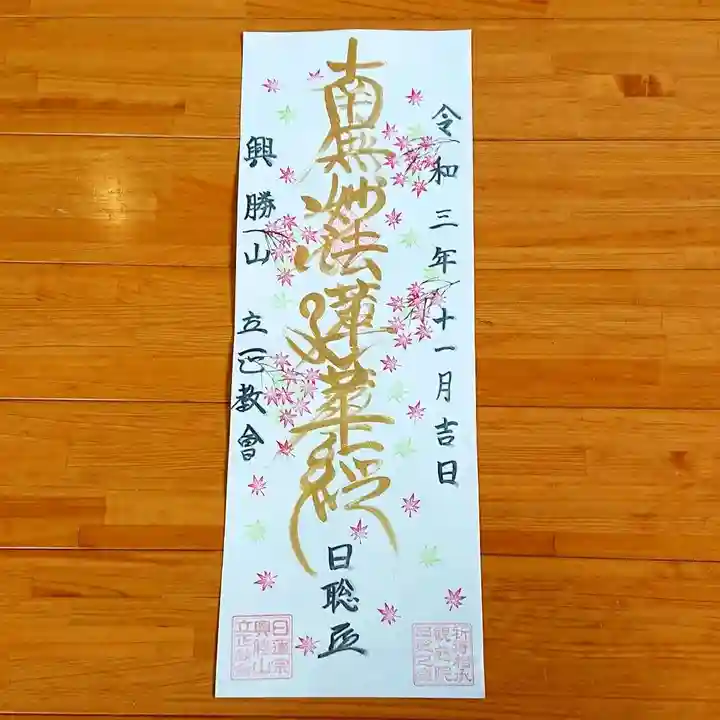 令和三年十一月吉日
南無妙法蓮華経
日聡
興勝山 立正教會
日蓮宗
興勝山
立正教會